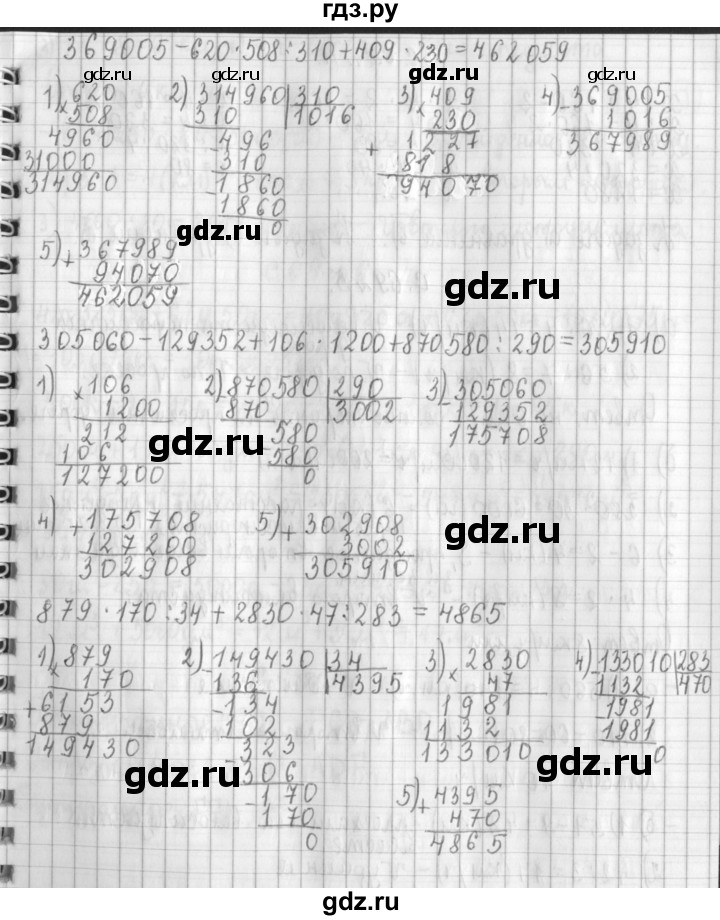 гдз.ру
369005-620·508:310+409·230=462059
1) 620 2) 314960 310 3) 409 4) 369005
× 508 310 1016 × 230 - 1016
4960 496 1227 367989
31000 310 + 818
314960 1860 94070
1860
0
5) + 367989
94070
462059
305060-129352+106·1200+870580:290=305910
1) × 106 2) 870580 290 3) 305060
1200 870 3002 - 129352
212 580 175708
106 580
127200 0
4) + 175708 5) + 302908
127200 3002
302908 305910
879·170:34+2830·47:283=4865
1) 879 2) 149430 34 3) × 2830 4) 133010 283
× 170 136 4395 47 1132 470
+ 6153 134 1981 1981
879 102 1132 1981
149430 323 133010 0
306
170 5) + 4395
170 470
0 4865
gdz.ru
gdz.ru
gdz.ru
gdz.ru
gdz.ru
gdz.ru
gdz.ru
gdz.ru
gdz.ru
gdz.ru
gdz.ru
gdz.ru